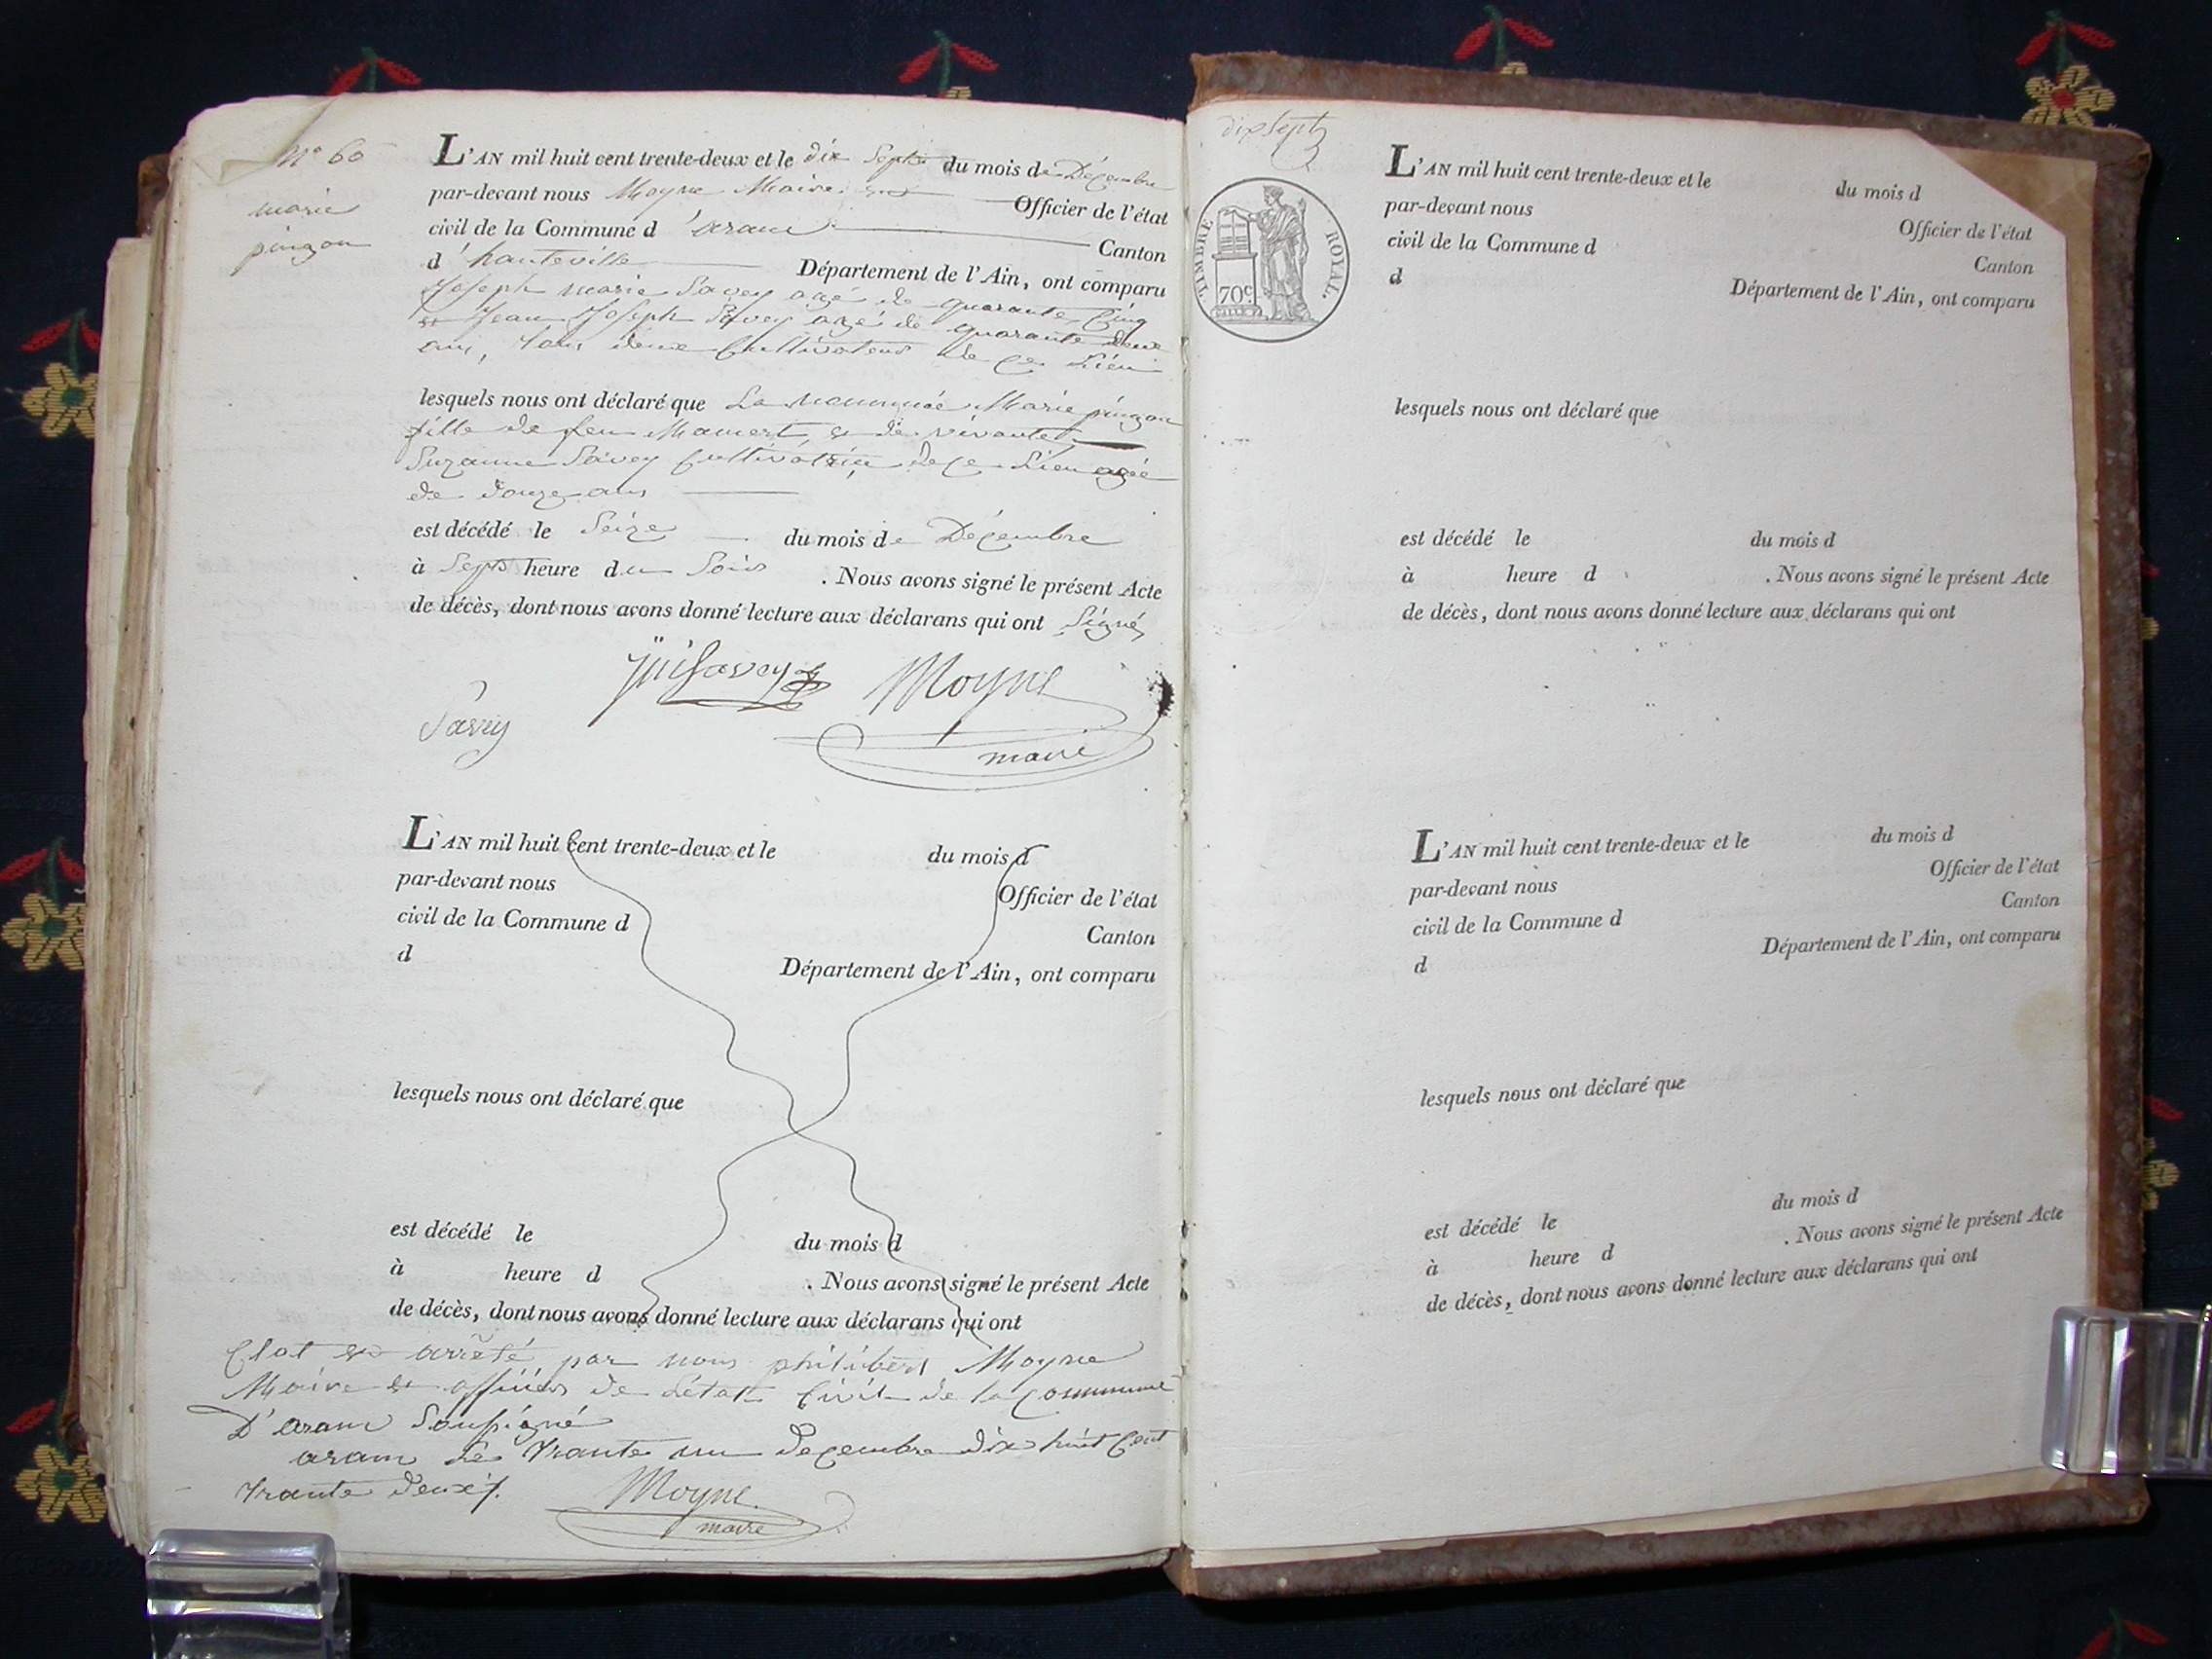 N° 60
marie
pingon
L'AN mil huit cent trente-deux et le dix Sept du mois de Décembre
par-devant nous Moyne Maire Officier de l'état
civil de la Commune d'aranc Canton
d'hauteville Département de l'Ain, ont comparu
Joseph marie Savey agé de quarante Cinq
et Jean Joseph Savey agé de quarante deux
ans, tous deux Cultivateurs de ce Lieu
lesquels nous ont déclaré que La nommée Marie pingon
fille de feu Mamert et de vivante
Suzanne Savey Cultivatrice de ce Lieu agée
de douze ans
est décédé le Seize du mois de Décembre
à Sept heure du Soir . Nous avons signé le présent Acte
de décès, dont nous avons donné lecture aux déclarans qui ont Signé
Savey
Moyne
Savey
maire
L'AN mil huit cent trente-deux et le du mois d
par-devant nous Officier de l'état
civil de la Commune d Canton
d Département de l'Ain, ont comparu
lesquels nous ont déclaré que
est décédé le du mois d
à heure d . Nous avons signé le présent Acte
de décès, dont nous avons donné lecture aux déclarans qui ont
Clot et arrêté par nous philibert Moyne
Maire et officier de L'état Civil de la Commune
D'aranc Soussigné
aranc Le trante un Decembre dix huit Cent
trante deux
Moyne
maire
dix sept
TIMBRE ROYAL.
70c
L'AN mil huit cent trente-deux et le du mois d
par-devant nous Officier de l'état
civil de la Commune d Canton
d Département de l'Ain, ont comparu
lesquels nous ont déclaré que
est décédé le du mois d
à heure d . Nous avons signé le présent Acte
de décès, dont nous avons donné lecture aux déclarans qui ont
L'AN mil huit cent trente-deux et le du mois d
par-devant nous Officier de l'état
civil de la Commune d Canton
d Département de l'Ain, ont comparu
lesquels nous ont déclaré que
est décédé le du mois d
à heure d . Nous avons signé le présent Acte
de décès, dont nous avons donné lecture aux déclarans qui ont